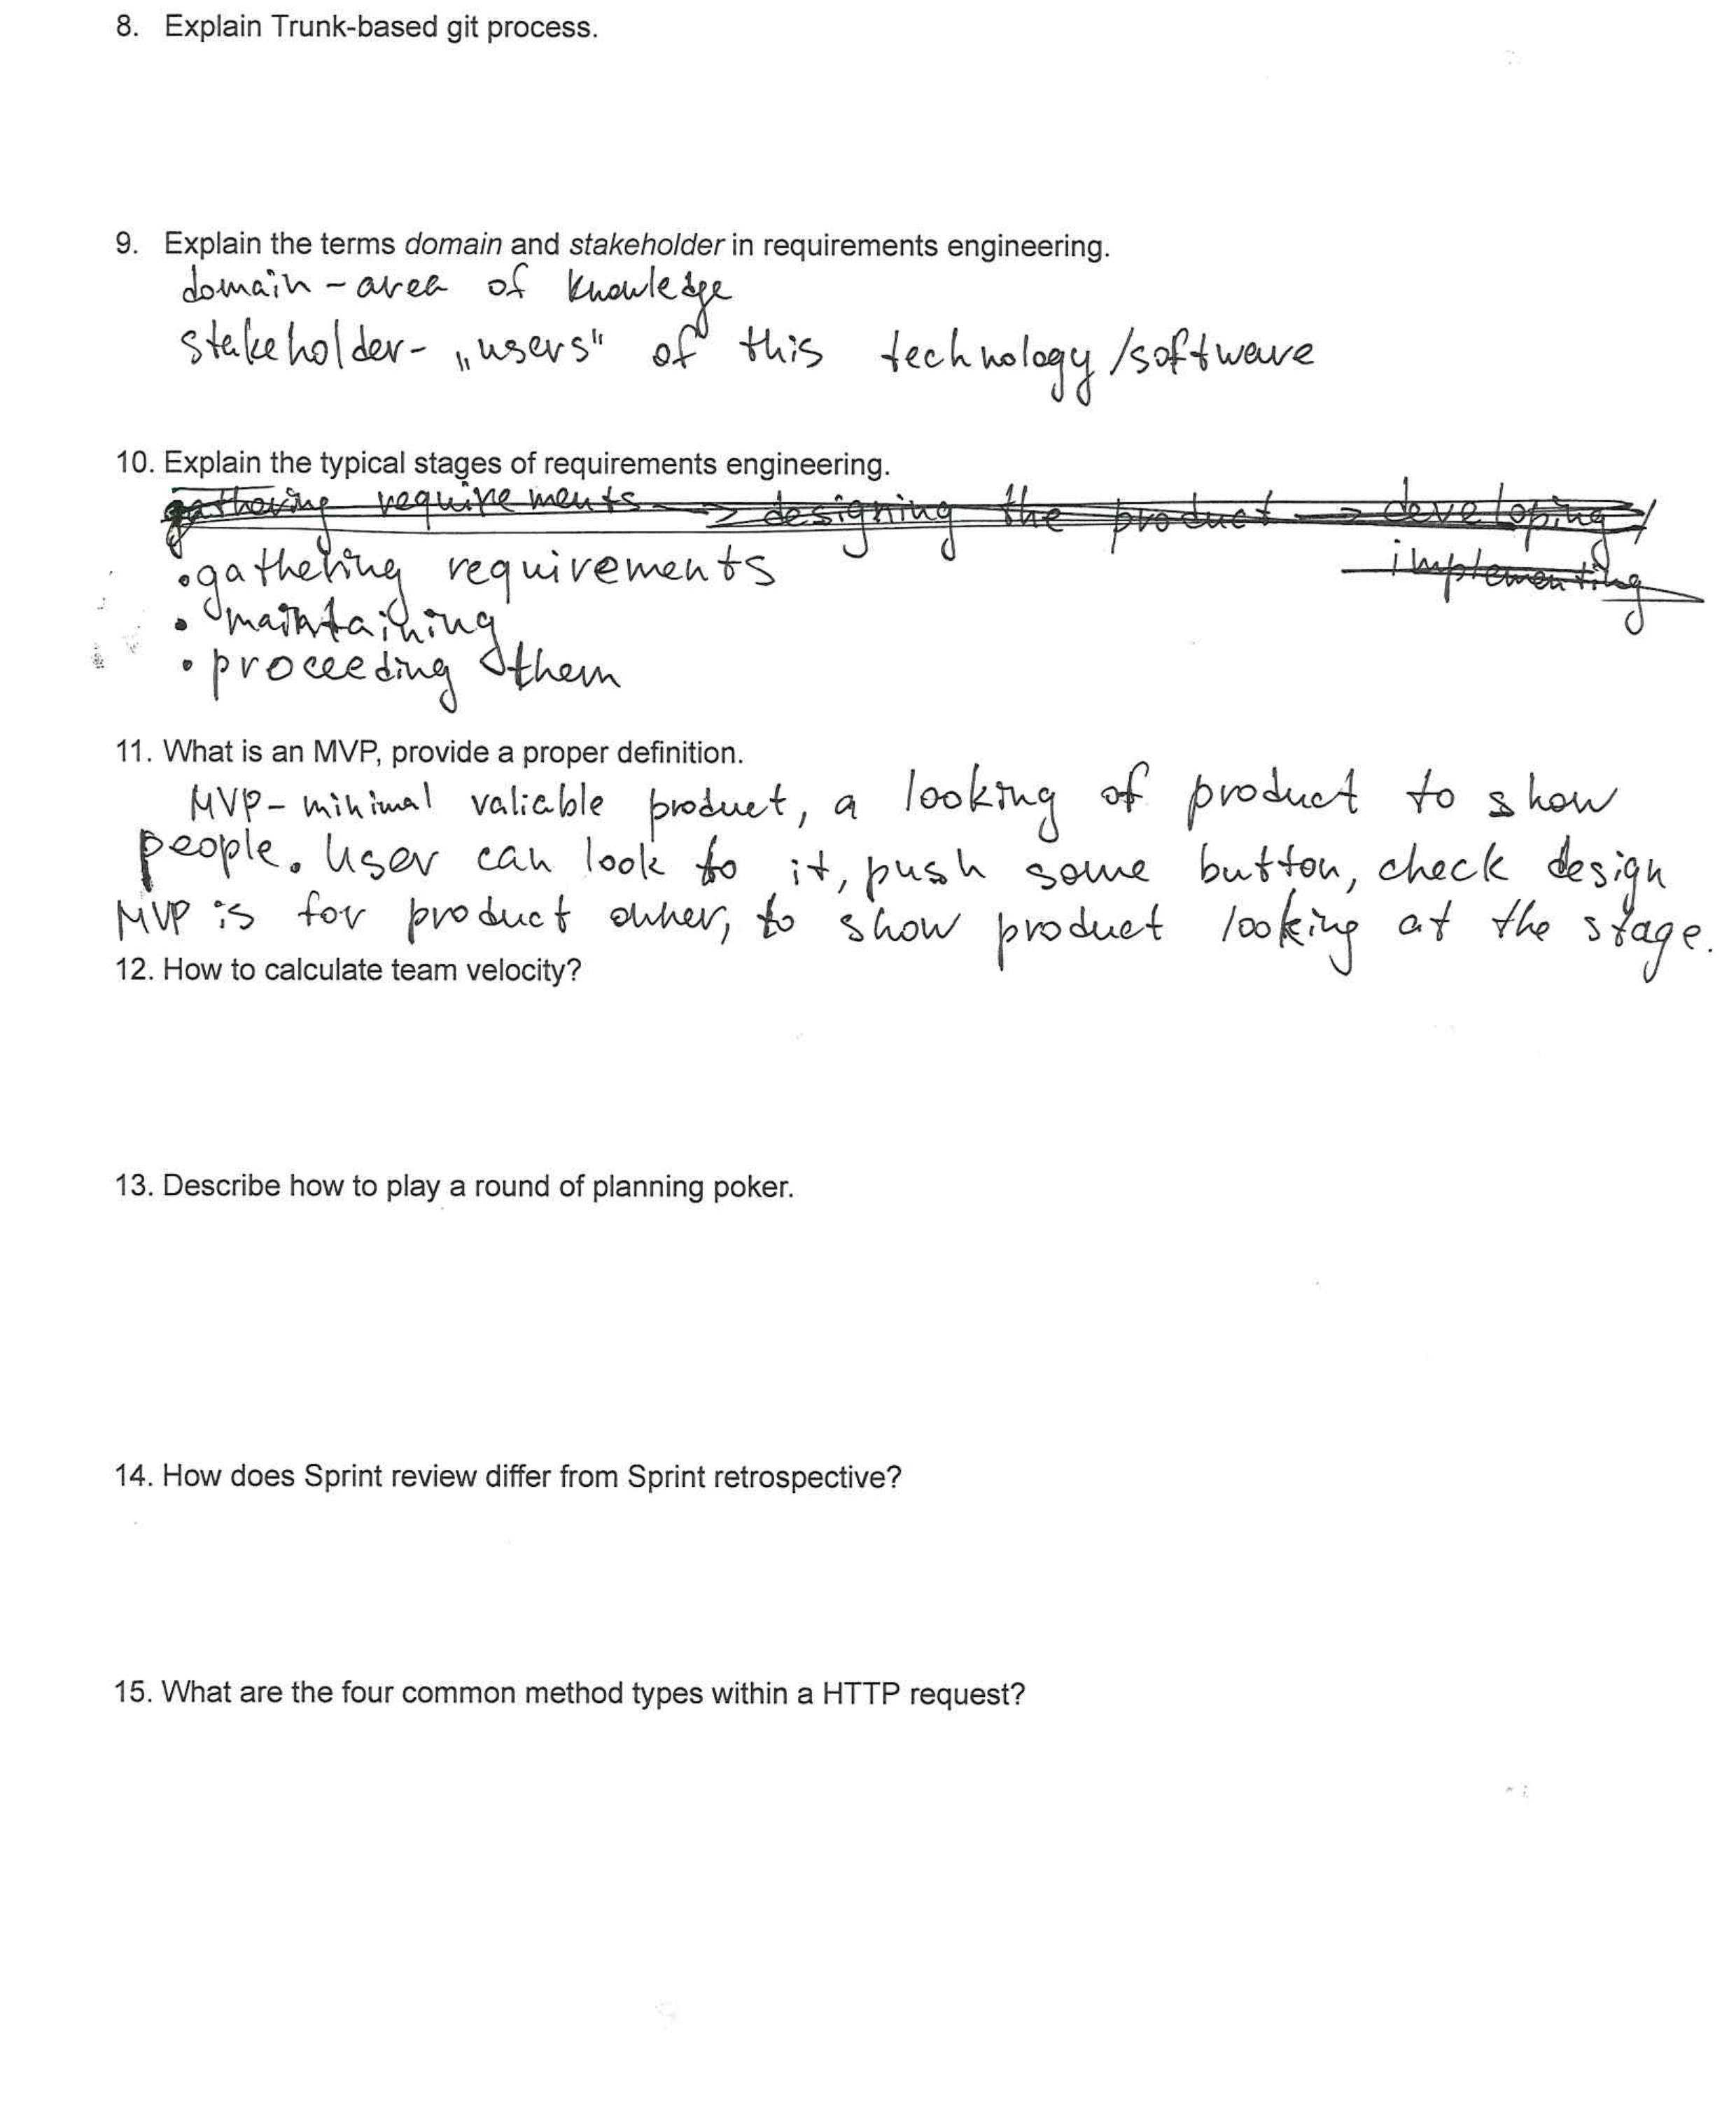 8. Explain Trunk-based git process.
9. Explain the terms domain and stakeholder in requirements engineering.
domain - area of knowledge
stakeholder - „users" of this technology/software
10. Explain the typical stages of requirements engineering.
gathering requirements -> designing the product -> developing/
implementing
• gathering requirements
• maintaining
• proceeding them
11. What is an MVP, provide a proper definition.
MVP - minimal valiable product, a looking of product to show
people. User can look to it, push some button, check design
MVP is for product owner, to show product looking at the stage.
12. How to calculate team velocity?
13. Describe how to play a round of planning poker.
14. How does Sprint review differ from Sprint retrospective?
15. What are the four common method types within a HTTP request?